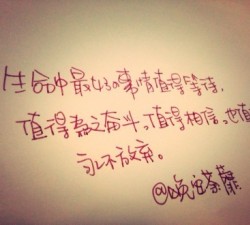 生命中最好的事情值得等待,
值得为之奋斗,值得相信,也值
永不放弃。
@晚安荼蘼